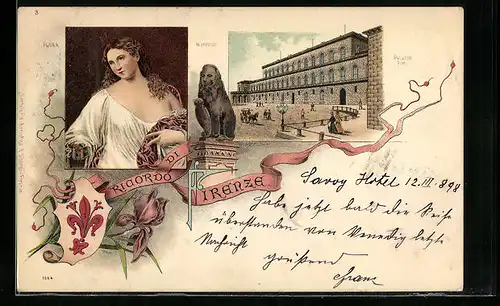 3
FLORA
PALAZZO
PITTI
RICORDO DI
FIRENZE
Savoy Hotel 12. III. 898
Habe jetzt bald die Reise
überstanden von Venedig letzte
Nachricht
grüßend
Franz